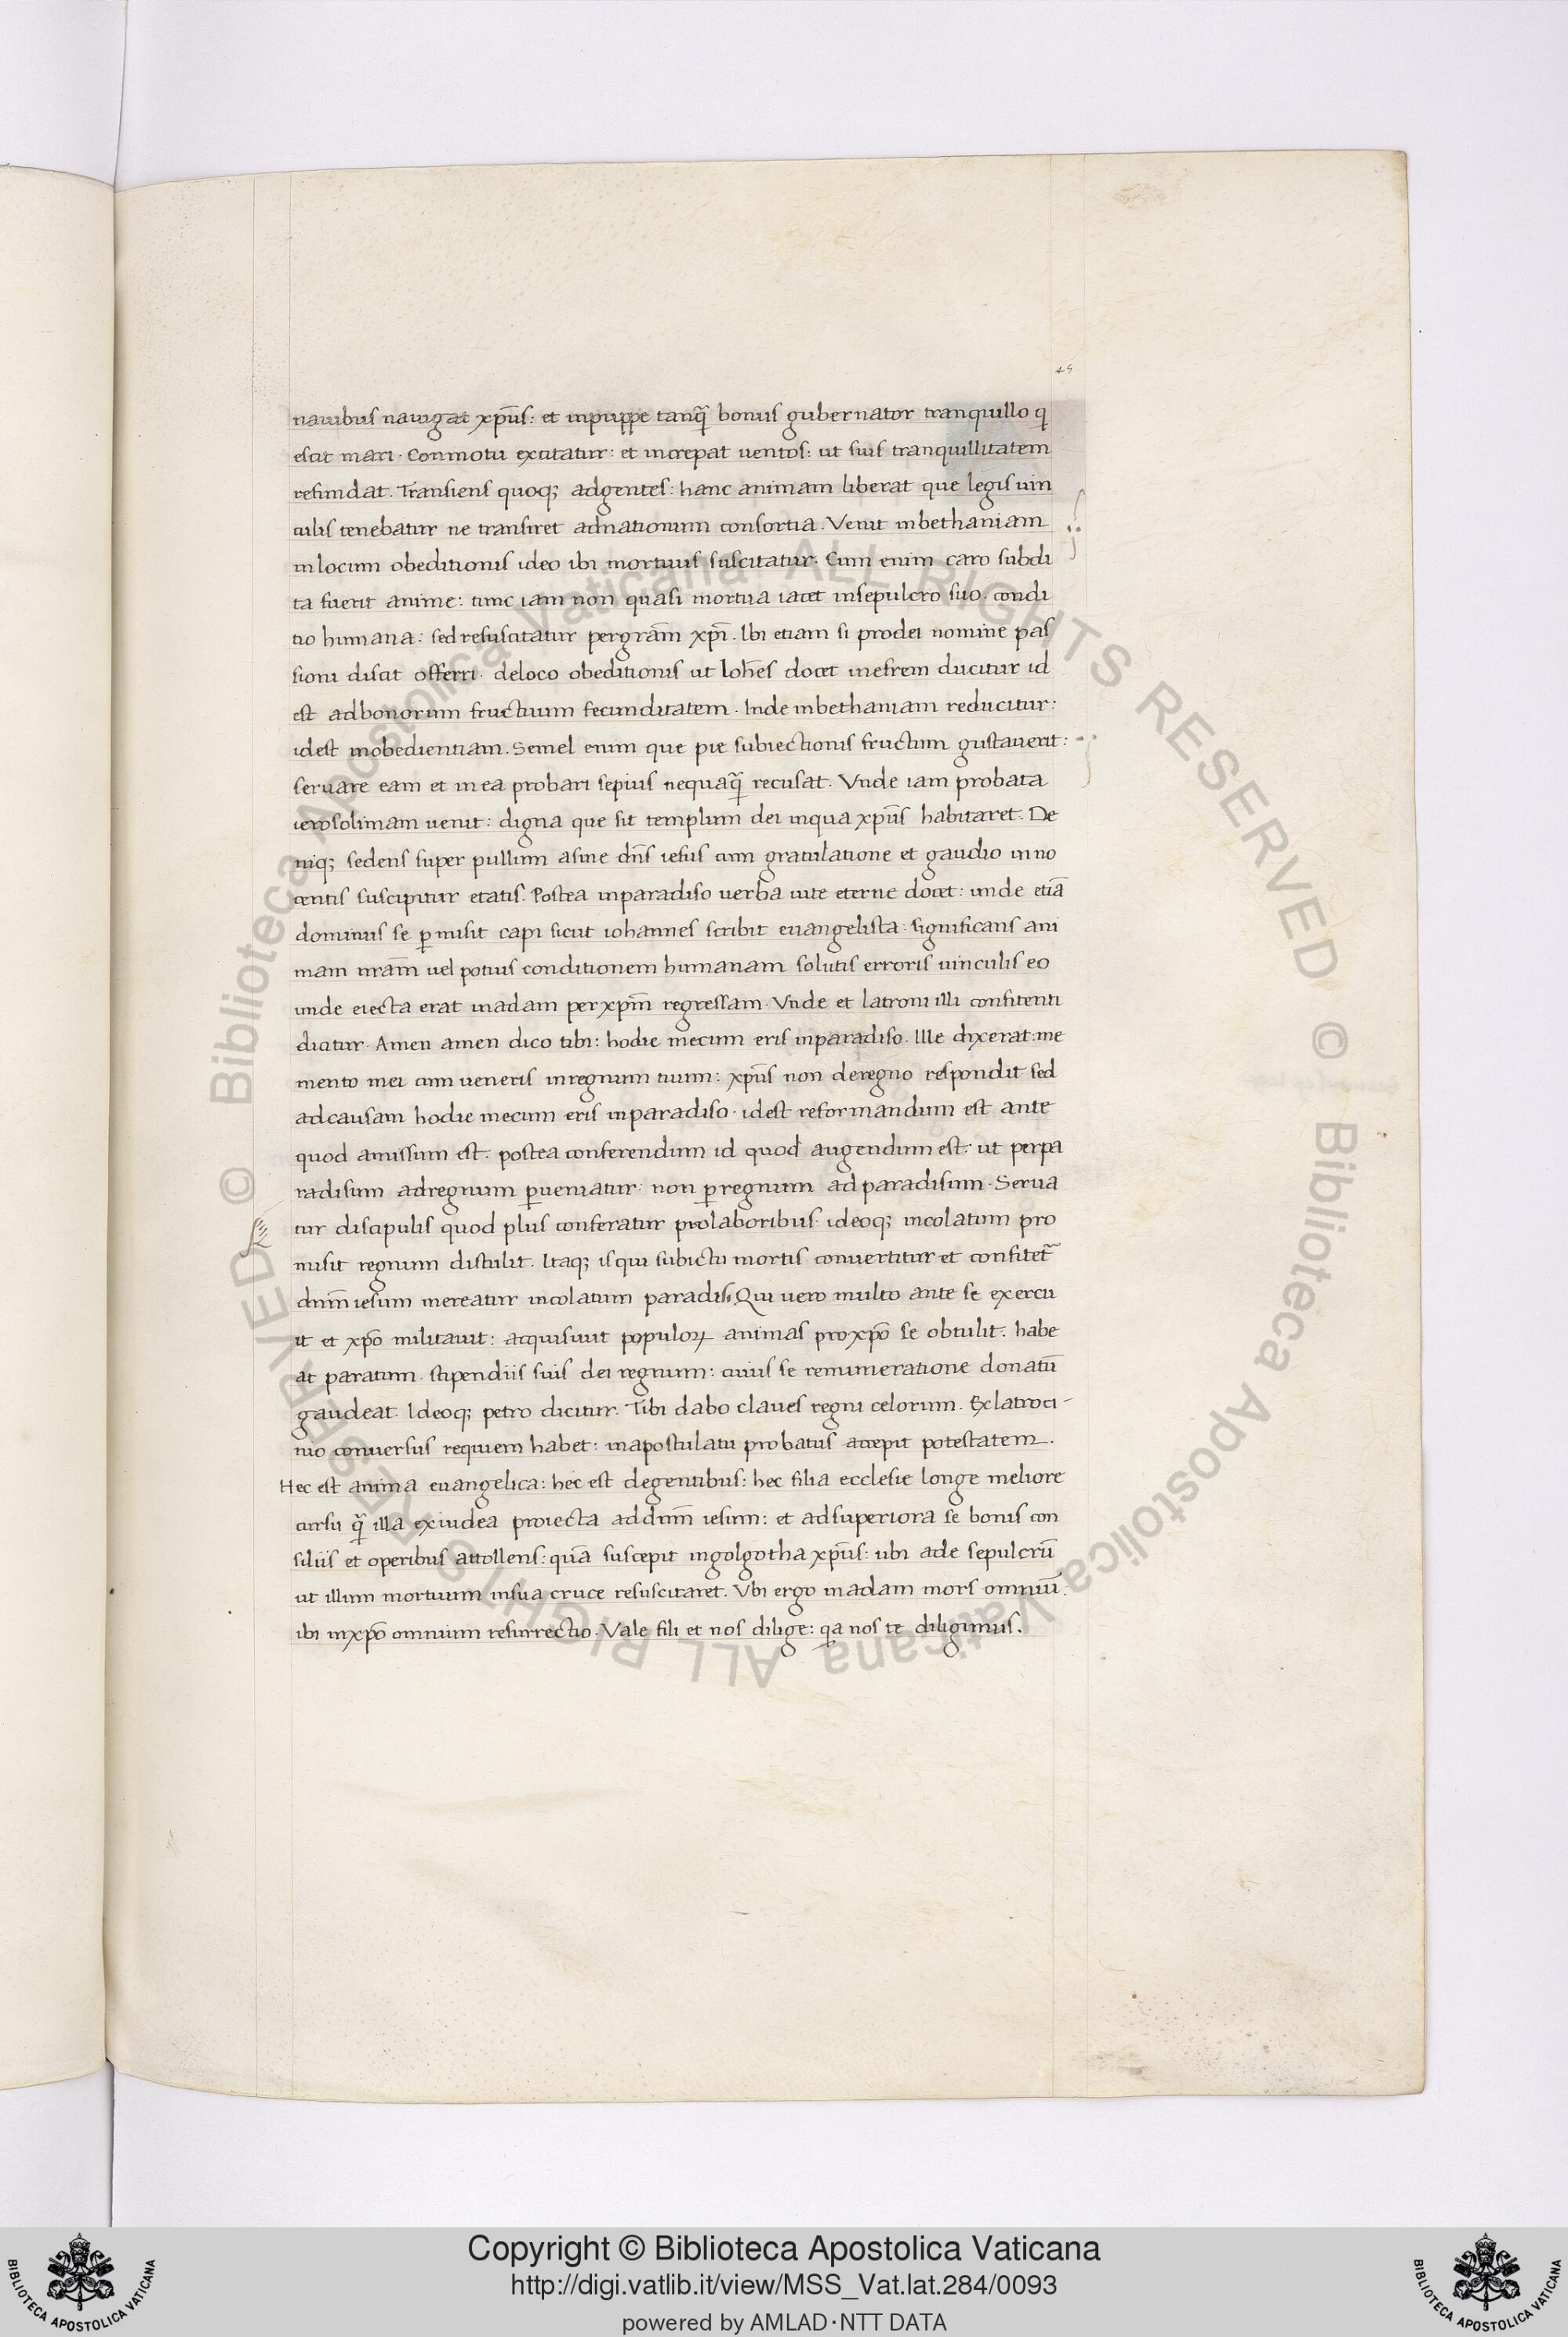 45
nauibus nauigat xp̄us: et inpuppe tanq̃ bonus gubernator tranquillo q
escit mari. Conmotu excitatur: et increpat uentos: ut suis tranquillitatem
refundat. Transiens quoq; adgentes: hanc animam liberat que legis uin
culis tenebatur ne transiret adnationum consortia. Venit inbethaniam
inlocum obeditionis ideo ibi mortuus suscitatur. Cum enim caro subdi
ta fuerit anime: tunc iam non quasi mortua iacet insepulcro suo. condi
tio humana: sed resuscitatur pergrām xp̄i. Ibi etiam si prodei nomine pas
sioni discit offerri. deloco obeditionis ut Ioh̄es docet inefrem ducitur id
est adbonorum fructuum fecunditatem. Inde inbethaniam reducitur:
idest inobedientiam. Semel enim que pie subiectionis fructum gustauerit:
seruare eam et inea probari sepius nequaq̃ recusat. Vnde iam probata
ierosolimam uenit: digna que sit templum dei inqua xp̄us habitaret. De
niq; sedens super pullum asine dn̄s iesus cum gratulatione et gaudio inno
centis suscipitur etatis. Postea inparadiso uerba uite eterne docet: unde etiā
dominus se p̱misit capi sicut iohannes scribit euangelista: significans ani
mam nrām uel potius conditionem humanam solutis erroris uinculis eo
unde eiecta erat inadam perxpm̄ regressam. Vnde et latroni illi confitenti
dicitur. Amen amen dico tibi: hodie mecum eris inparadiso. Ille dixerat: me
mento mei cum ueneris inregnum tuum: xp̄us non deregno respondit sed
adcausam hodie mecum eris inparadiso. idest reformandum est ante
quod amissum est. postea conferendum id quod augendum est. ut perpa
radisum adregnum p̱ueniatur. non p̱regnum adparadisum. Serua
tur discipulis quod plus conferatur prolaboribus. ideoq; incolatum pro
misit regnum distulit. Itaq; isqui subictu mortis conuertitur et confitet᷑
dnm̄ iesum mereatur incolatum paradisi. Qui uero multo ante se exercu
it et xp̄o militauit: acquisiuit populoꝝ animas proxp̄o se obtulit. habe
at paratum. stipendiis suis dei regnum: cuius se remuneratione donatū
gaudeat. Ideoq; petro dicitur. Tibi dabo claues regni celorum. Exlatroci-
nio conuersus requiem habet: inapostulatu probatus accepit potestatem.
Hec est anima euangelica: hec est degentibus: hec filia ecclesie longe meliore
cursu q̃ illa exiudea proiecta addnm̄ iesum: et adsuperiora se bonis con
siliis et operibus attollens: quā suscepit ingolgotha xp̄us: ubi ade sepulcrū
ut illum mortuum insua cruce resuscitaret. Vbi ergo inadam mors omniū:
ibi inxp̄o omnium resurrectio. Vale fili et nos dilige: qa nos te diligimus.
© Biblioteca Apostolica Vaticana ALL RIGHTS RESERVED
© Biblioteca Apostolica Vaticana ALL RIGHTS RESERVED
Copyright © Biblioteca Apostolica Vaticana
http://digi.vatlib.it/view/MSS_Vat.lat.284/0093
powered by AMLAD·NTT DATA
BIBLIOTECA APOSTOLICA VATICANA
BIBLIOTECA APOSTOLICA VATICANA